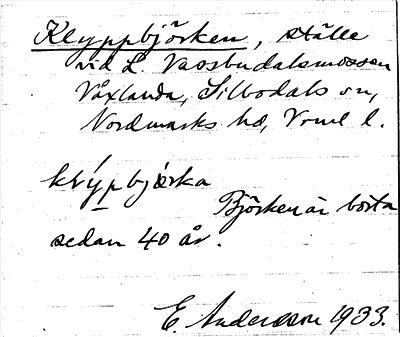 Klyppbjörken, ställe
vid L. Vassbudalsmossen
Våxlanda, Silbodals sn,
Nordmarks hd, Vrml l.
klýpbjörka
Björken är borta
sedan 40 år.
E. Andersson 1933.